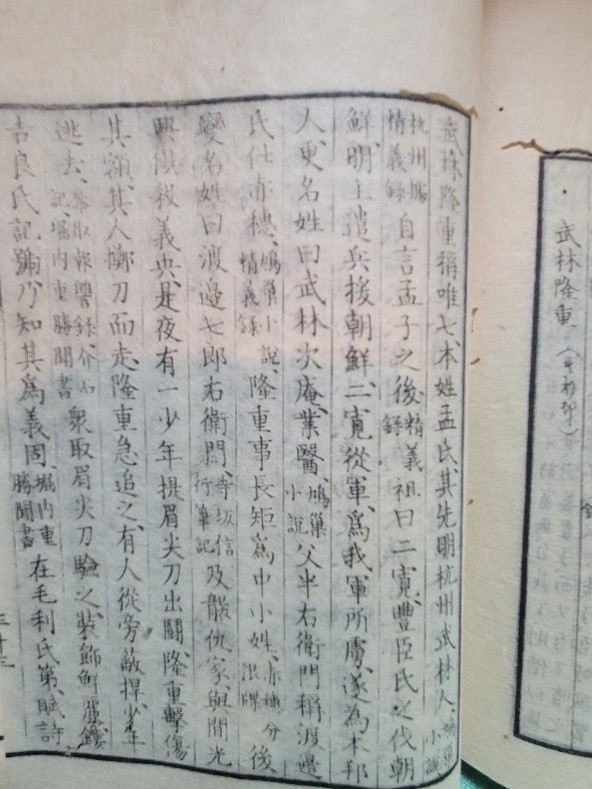 武林隆重
武林隆重稱唯七、本姓孟氏、其先明杭州武林人、鳩巢小説
杭州據情義録自言孟子之後、精義録祖曰二寛、豐臣氏之伐朝
鮮、明主遣兵援朝鮮、二寛從軍、爲我軍所虜、遂為本邦
人、更名姓曰武林次庵、業醫、鳩巢小説父半右衛門稱渡邊
氏仕赤穗、鳩巢小説、情義録隆重事長矩爲中小姓、赤穗分限牒後
變名姓曰渡邉七郎右衛門、寺坂信行筆記及仇家、與間光
興倶殺義央、是夜有一少年提眉尖刀出鬪、隆重擊傷
其額、其人擲刀而走、隆重急追之、有人從旁蔽捍、少年
逃去、參取報讐録、介石記、堀内重勝聞書衆取眉尖刀驗之、裝飾鮮麗、鐫
吉良氏記號、乃知其爲義周、堀内重勝聞書在毛利氏第、賦詩
三十三